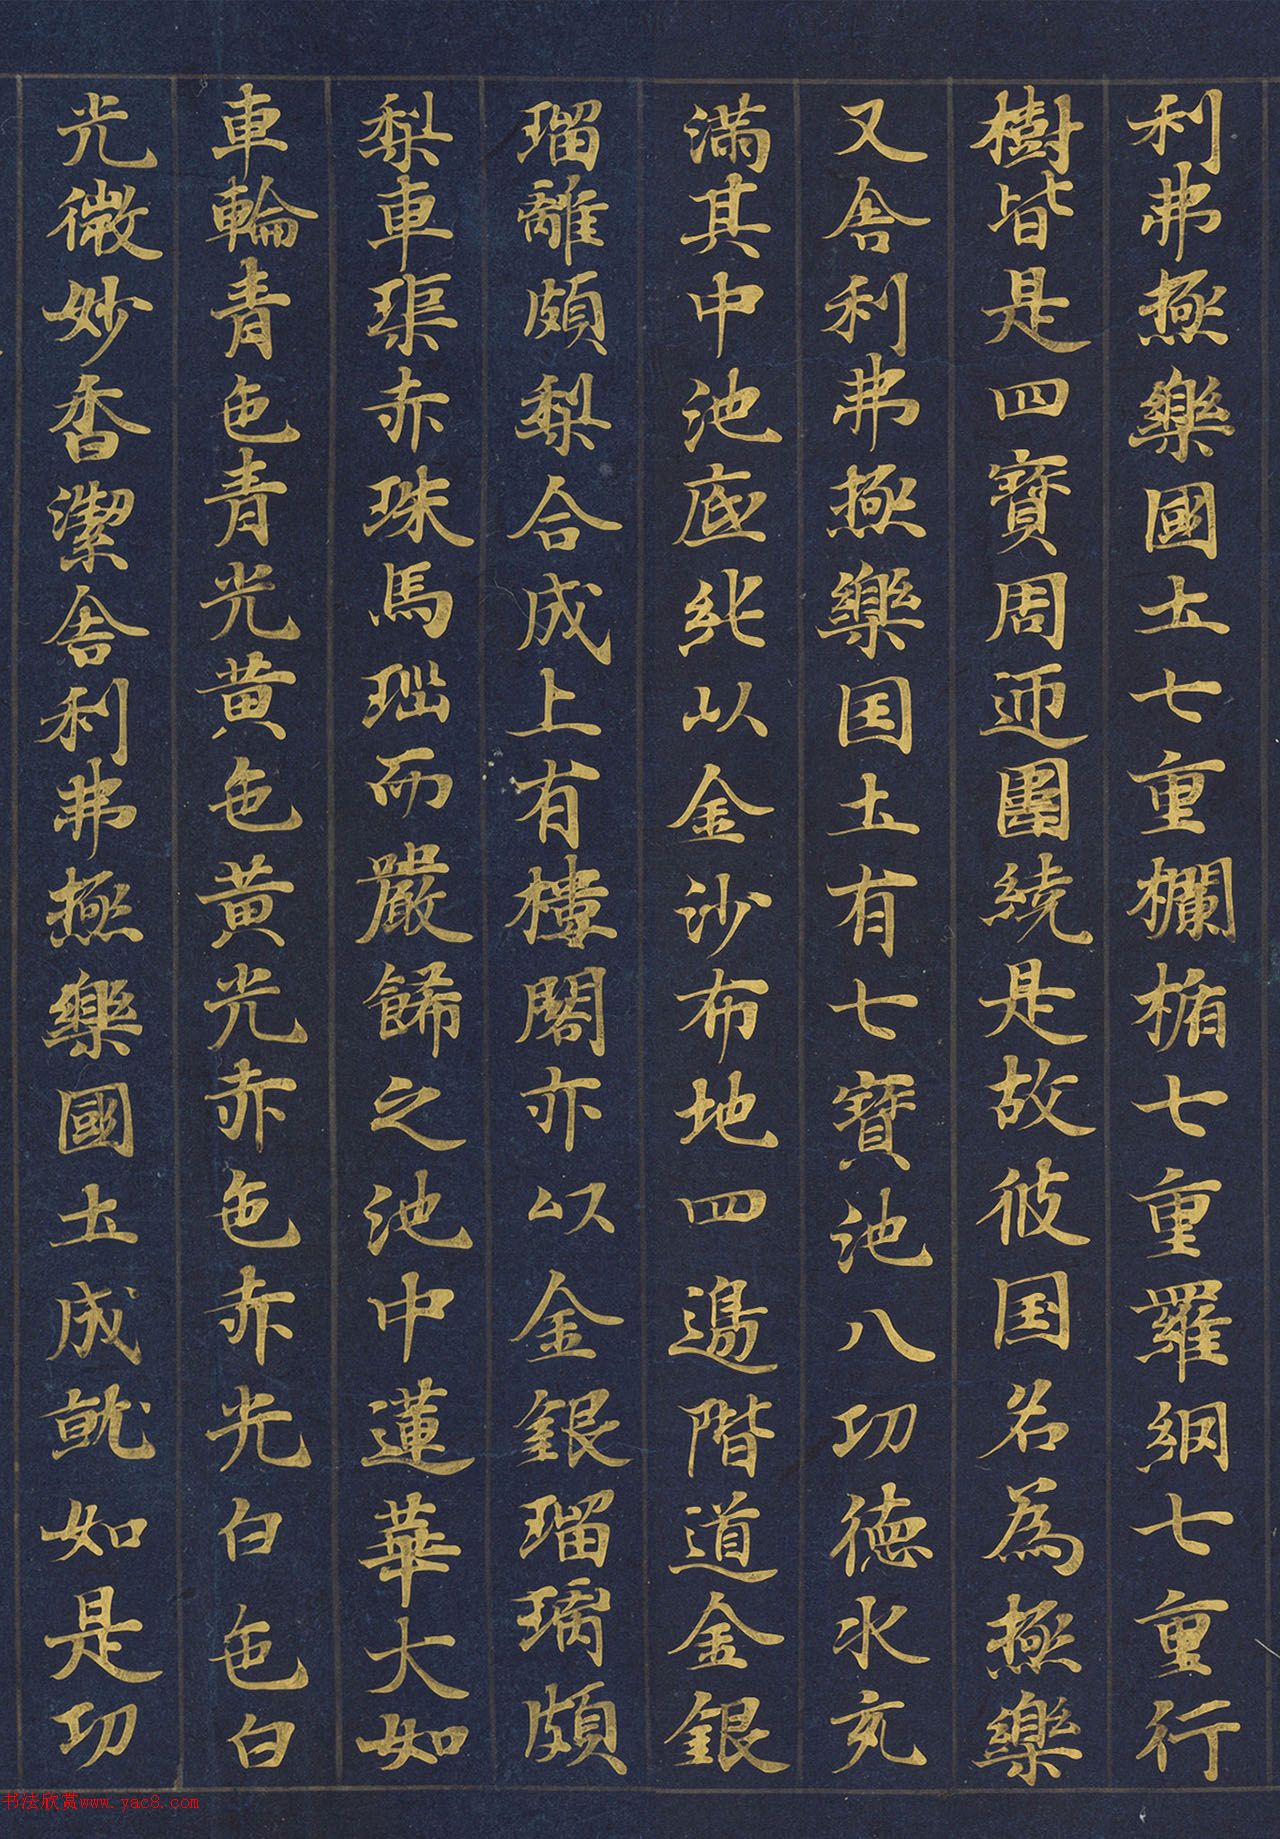 利弗極樂國土七重欄楯七重羅網七重行
樹皆是四寶周迊圍繞是故彼国名為極樂
又舍利弗極樂国土有七寶池八功德水充
滿其中池底純以金沙布地四邊階道金銀
瑠離頗梨合成上有樓閣亦以金銀瑠璃頗
梨車璖赤珠馬瑙而嚴餝之池中蓮華大如
車輪青色青光黄色黄光赤色赤光白色白
光微妙香潔舍利弗極樂國土成就如是功
书法欣赏www.yac8.com